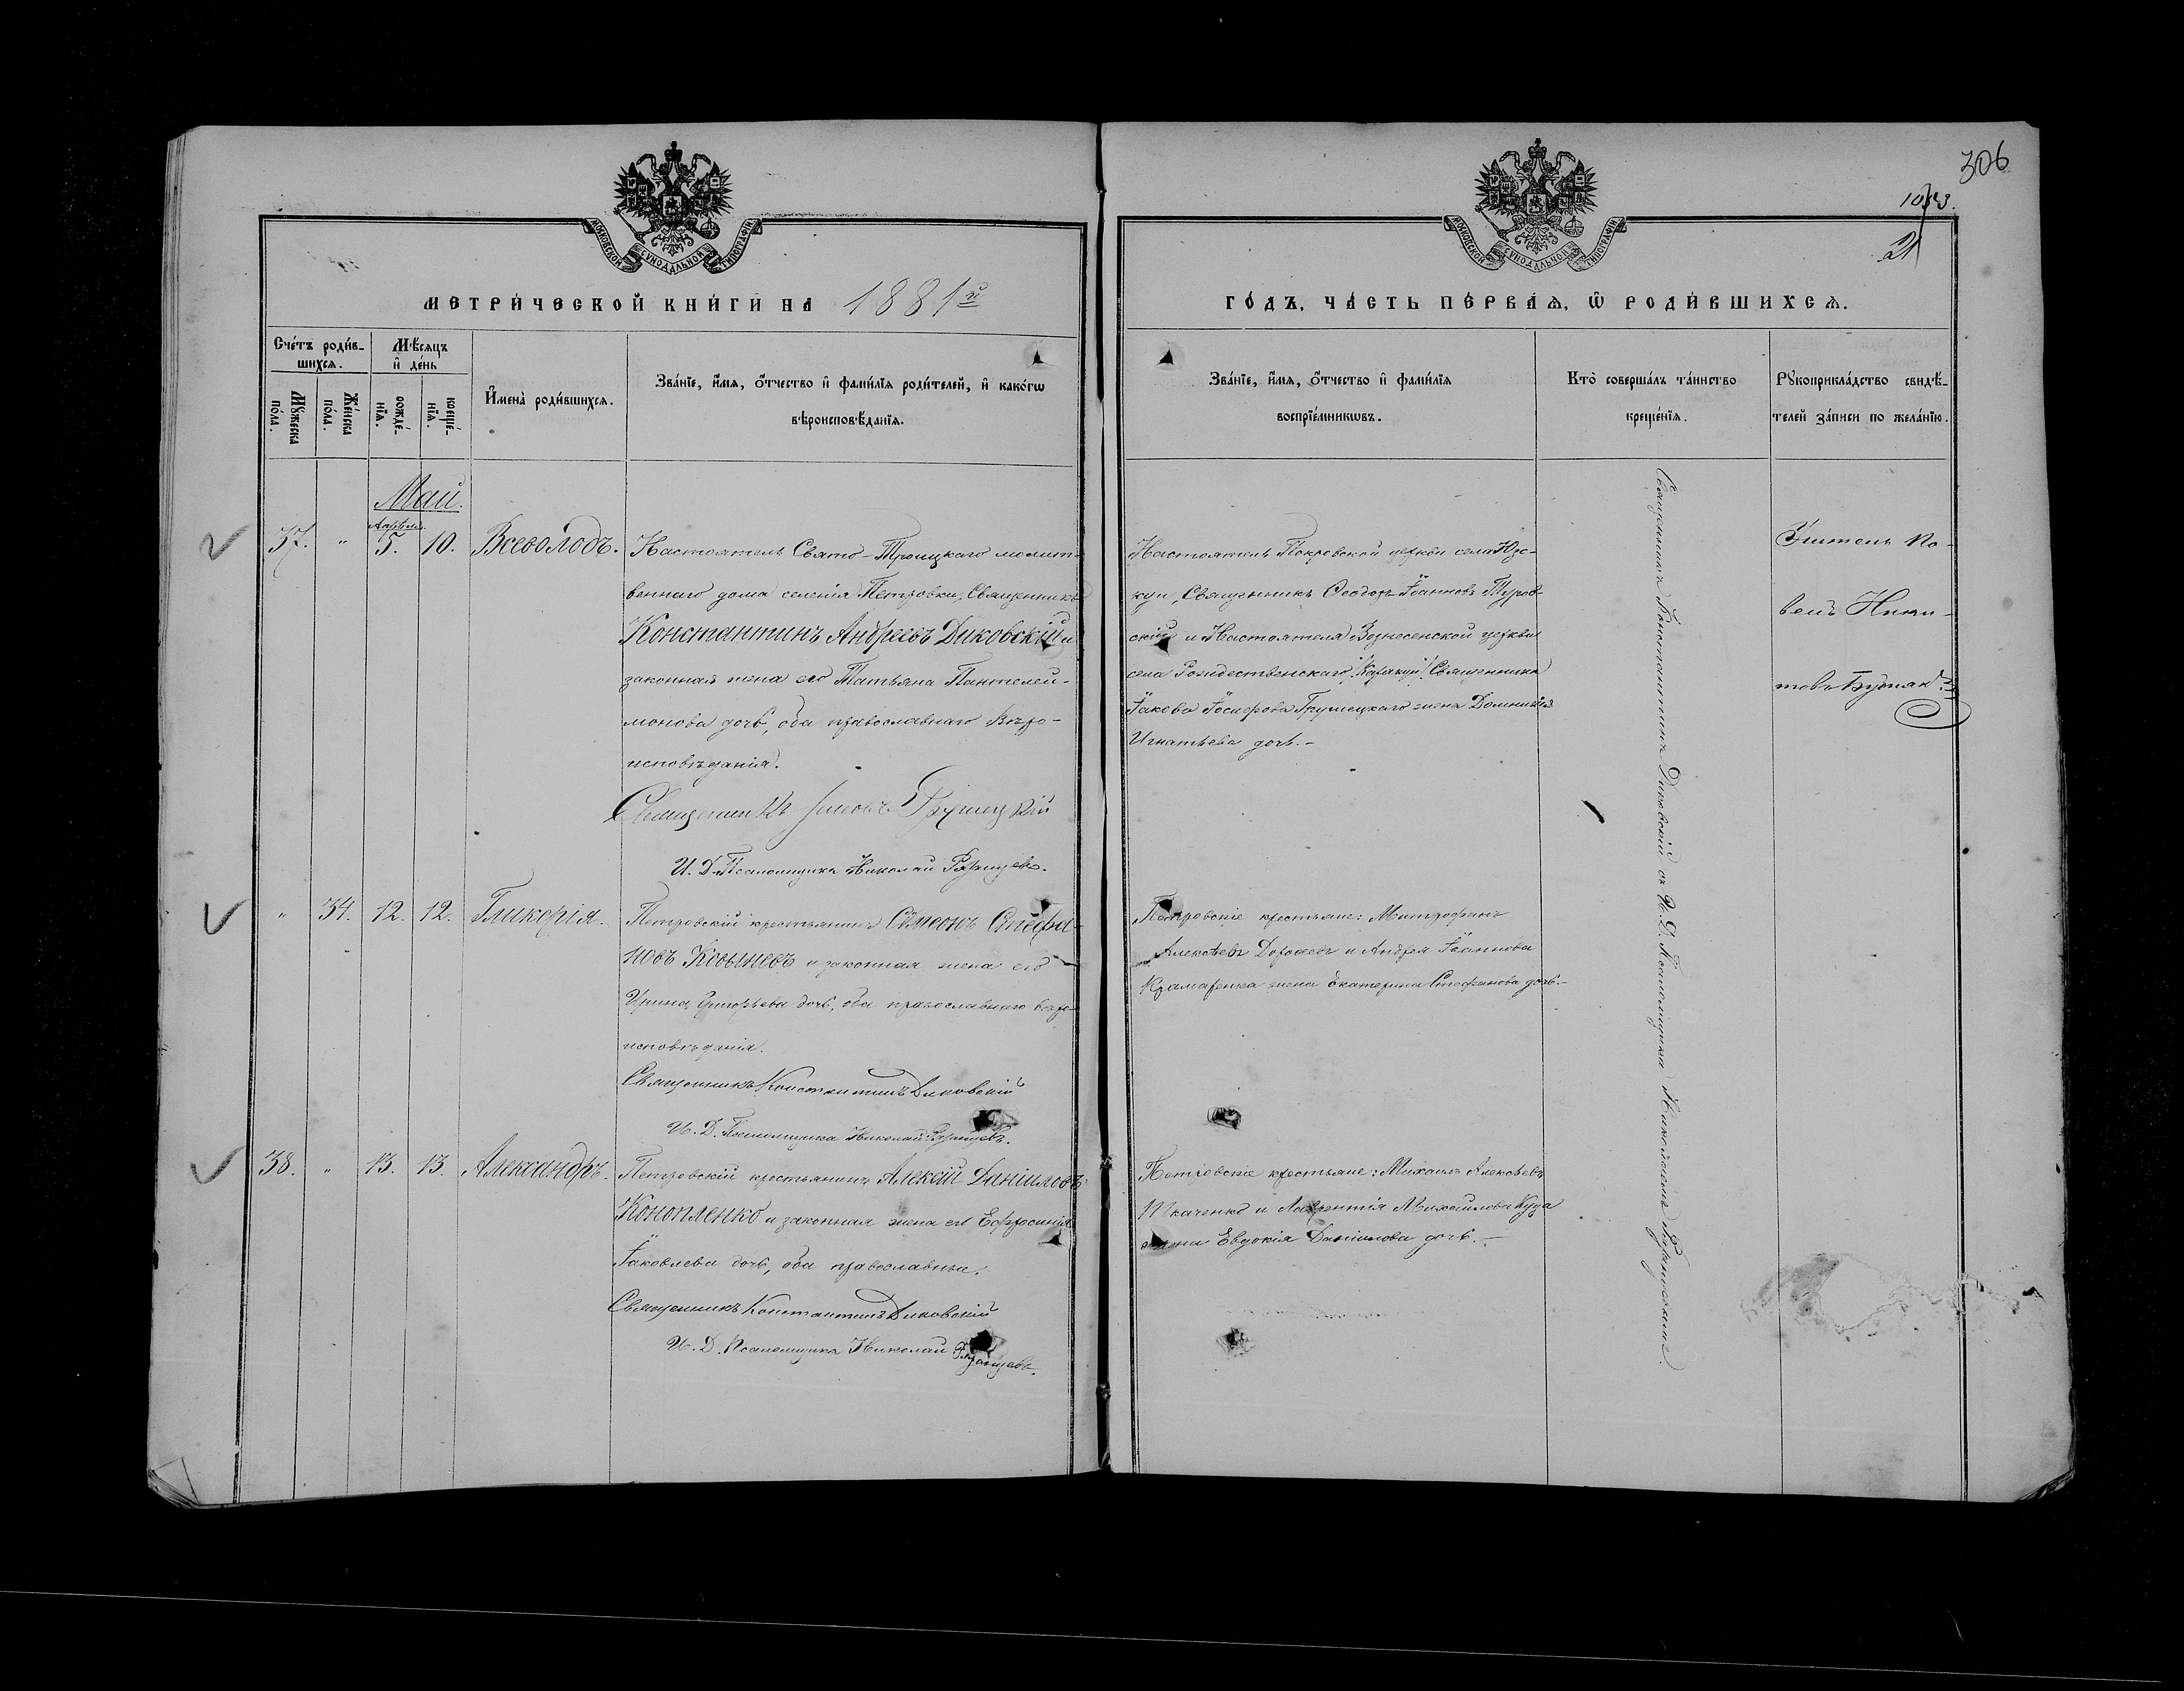 306
1033.
21
МОСКОВСКОЙ СѴНОДАЛЬНОЙ ТИПОГРАФІИ
МОСКОВСКОЙ СѴНОДАЛЬНОЙ ТИПОГРАФІИ
МЕТРИ́ЧЕСКОЙ КНИ́ГИ НА 1881й
ГО́ДЪ, ЧА́СТЬ ПЕ́РВАѦ, Ѽ РОДИ́ВШИХСѦ.
Сче́тъ роди́в-
шихсѧ.
Мꙋ́жеска по́ла.
Же́нска по́ла.
Мѣ́сѧцъ
и҆ де́нь
рожде́-нїѧ.
креще́-нїѧ.
И҆мена̀ роди́вшихсѧ.
Зва́нїе, и҆́мѧ, ѻ҆́тчество и҆ фами́лїѧ роди́телей, и҆ како́гѡ
вѣроисповѣ́данїѧ.
Зва́нїе, и҆́мѧ, ѻ҆́тчество и҆ фами́лїѧ
воспрїе́мникѡвъ.
Кто̀ соверша́лъ та́инство
креще́нїѧ.
Рꙋкоприкла́дство свидѣ́-
телей за́писи по жела́нїю.
Май.
Апрѣля.
37. " 5. 10. Всеволодъ.
Настоятель Свято-Троицкаго молит-
веннаго дома селенія Петровки, Священникъ
Константинъ Андреевъ Диковскій и
законная жена его Татьяна Пантелей-
монова дочь, оба православнаго вѣро-
исповѣданія.
Священникъ Грушецкій
И. Д. Псаломщика Николай
Настоятель Покровской церкви села Юз-
куи, Священникъ Ѳеодоръ Іоанновъ Туров-
скій и Настоятеля Вознесенской церкви
села Рождественскаго Священника
Іакова Іосифова Грушецкаго жена Домникія
Игнатьева дочь.-
Учитель Па-
велъ Ники-
товъ
Священникъ Константинъ Диковскій съ И. Д. Псаломщика Николаемъ
" 34. 12. 12. Гликерія.
Петровскій крестьянинъ Сѵмеонъ Стефа-
новъ Ковыневъ и законная жена его
Ирина Григорьева дочь, оба православнаго вѣро-
исповѣданія.
Священникъ Константинъ Диковскій
И. Д. Псаломщика Николай
Петровскіе крестьяне: Митрофанъ
Алексѣевъ и Андрея Іоаннова
Крамаренка жена Екатерина Стефанова дочь.-
38. " 13. 13. Александръ.
Петровскій крестьянинъ Алексій Даніиловъ
Конопленко и законная жена его Евфросинія
Іаковлева дочь, оба православные.
Священникъ Константинъ Диковскій
И. Д. Псаломщика Николай
Петровскіе крестьяне: Михаилъ Алексѣевъ
Ткаченко и Лаврентія Михайлова
жена Евдокія Даніилова дочь.-